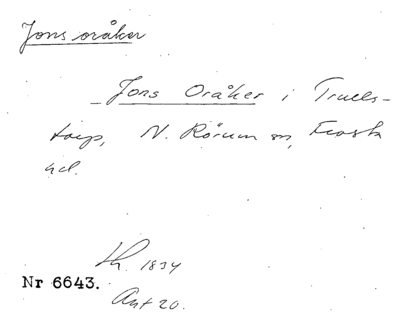 Jons oråker
Jons Oråker i Truels-
torp, N. Rörum sn, Frosta
hd.
Lh. 1834
Nr 6643.
Ant 20.